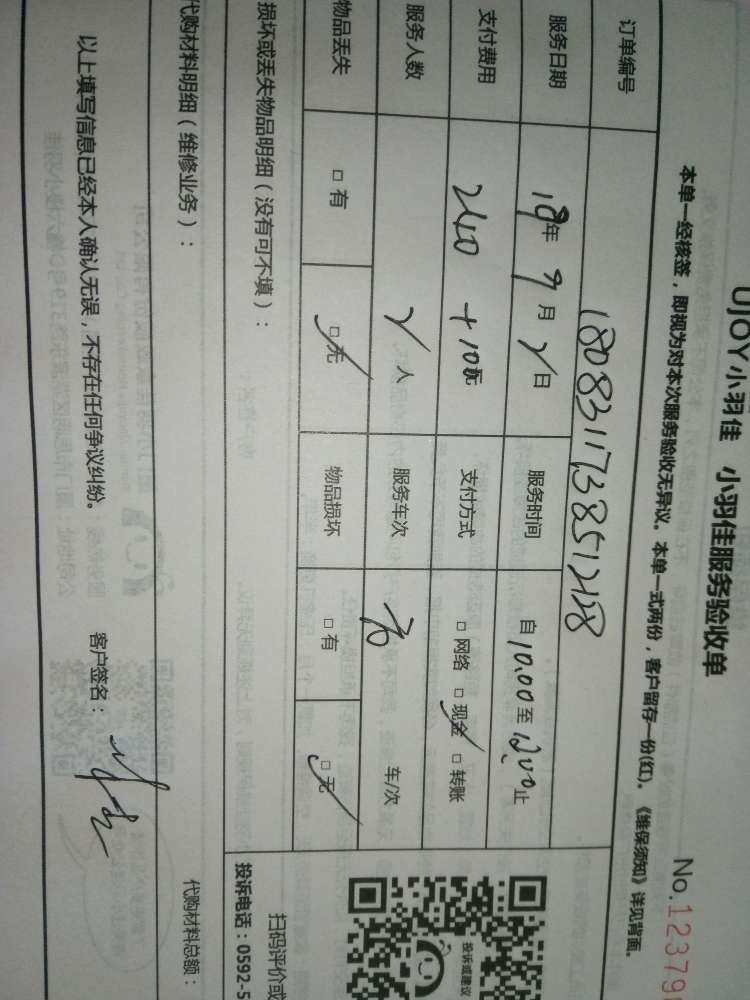 UJOY小羽佳 小羽佳服务验收单
No.12379
本单一经核签，即视为对本次服务验收无异议。本单一式两份，客户留存一份(红)。《维保须知》详见背面。
订单编号 180831173851258
服务日期 18年 9月 2日 服务时间 自 10.00 至 12.00 止
支付费用 240 + 10元 支付方式 □ 网络 □ 现金 □ 转账
服务人数 2人 服务车次 车/次
物品丢失 □ 有 □ 无 物品损坏 □ 有 □ 无
损坏或丢失物品明细（没有可不填）：
扫码评价或
投诉或建议
投诉电话：0592-5
代购材料明细（维修业务）：
代购材料总额：
以上填写信息已经本人确认无误，不存在任何争议纠纷。 客户签名：